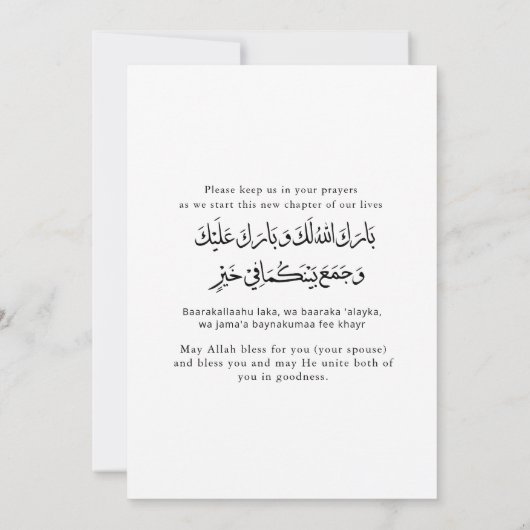 Please keep us in your prayers
as we start this new chapter of our lives
بَارَكَ اللهُ لَكَ وَبَارَكَ عَلَيْكَ
وَجَمَعَ بَيْنَكُمَا فِيْ خَيْرٍ
Baarakallaahu laka, wa baaraka 'alayka,
wa jama'a baynakumaa fee khayr
May Allah bless for you (your spouse)
and bless you and may He unite both of
you in goodness.